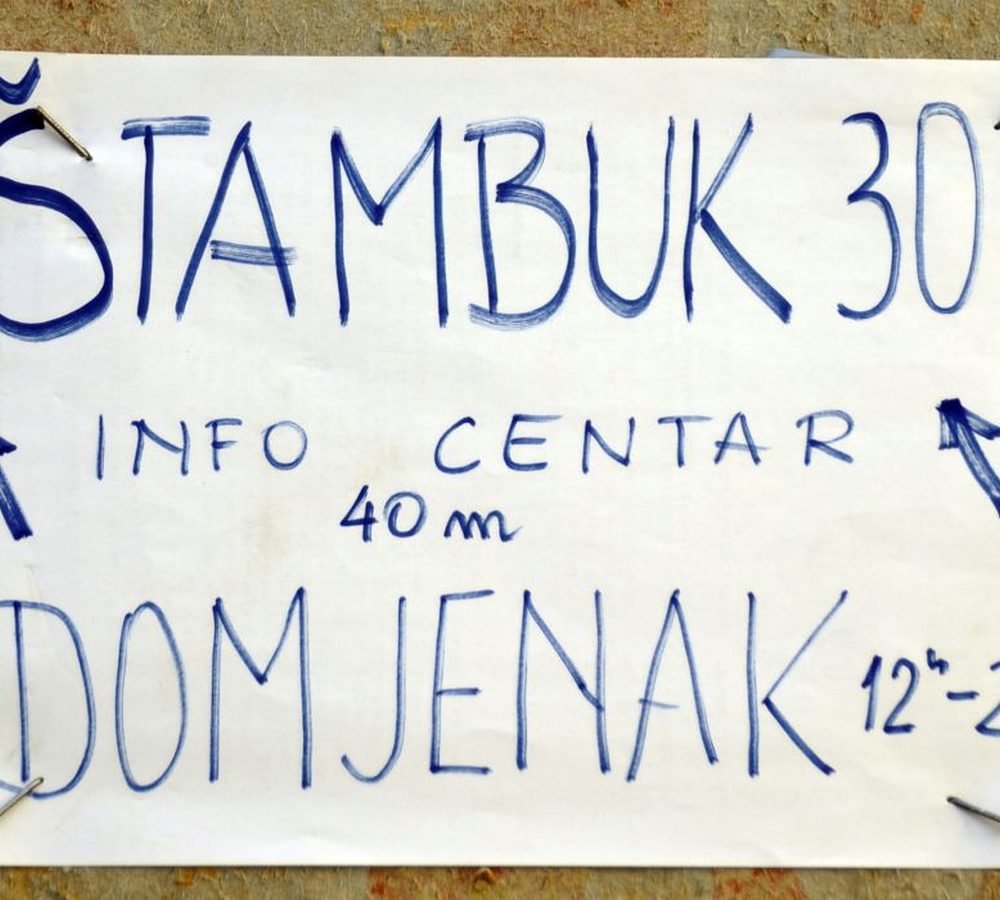 ŠTAMBUK 30
INFO CENTAR
40 m
DOMJENAK 12h-2